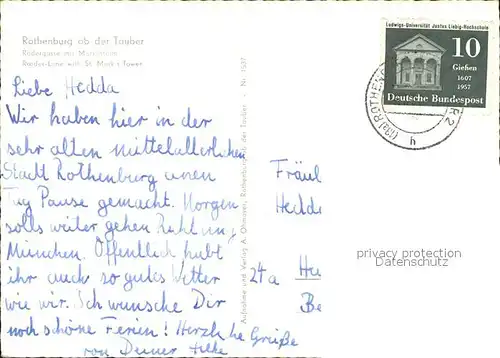 Rothenburg ob der Tauber
Rödergasse mit Markusturm
Roeder-Lane with St. Mark's Tower
Ludwigs-Universität Justus Liebig-Hochschule
10
Gießen
1607
1957
Deutsche Bundespost
(13a) ROTHENB
h
Liebe Hedda
Wir haben hier in der
sehr alten mittelalterlichen
Stadt Rothenburg einen
Tag Pause gemacht. Morgen
solls weiter gehen Richtung
München. Öffentlich habt
ihr auch so gutes Wetter
wie wir. Ich wünsche Dir
noch schöne Ferien! Herzliche Grüße
von Deiner
Aufnahme und Verlag A. Ohmayer, Rothenburg ob der Tauber - Nr. 1537
Fräul
Hedd
24a
privacy protection
Datenschutz